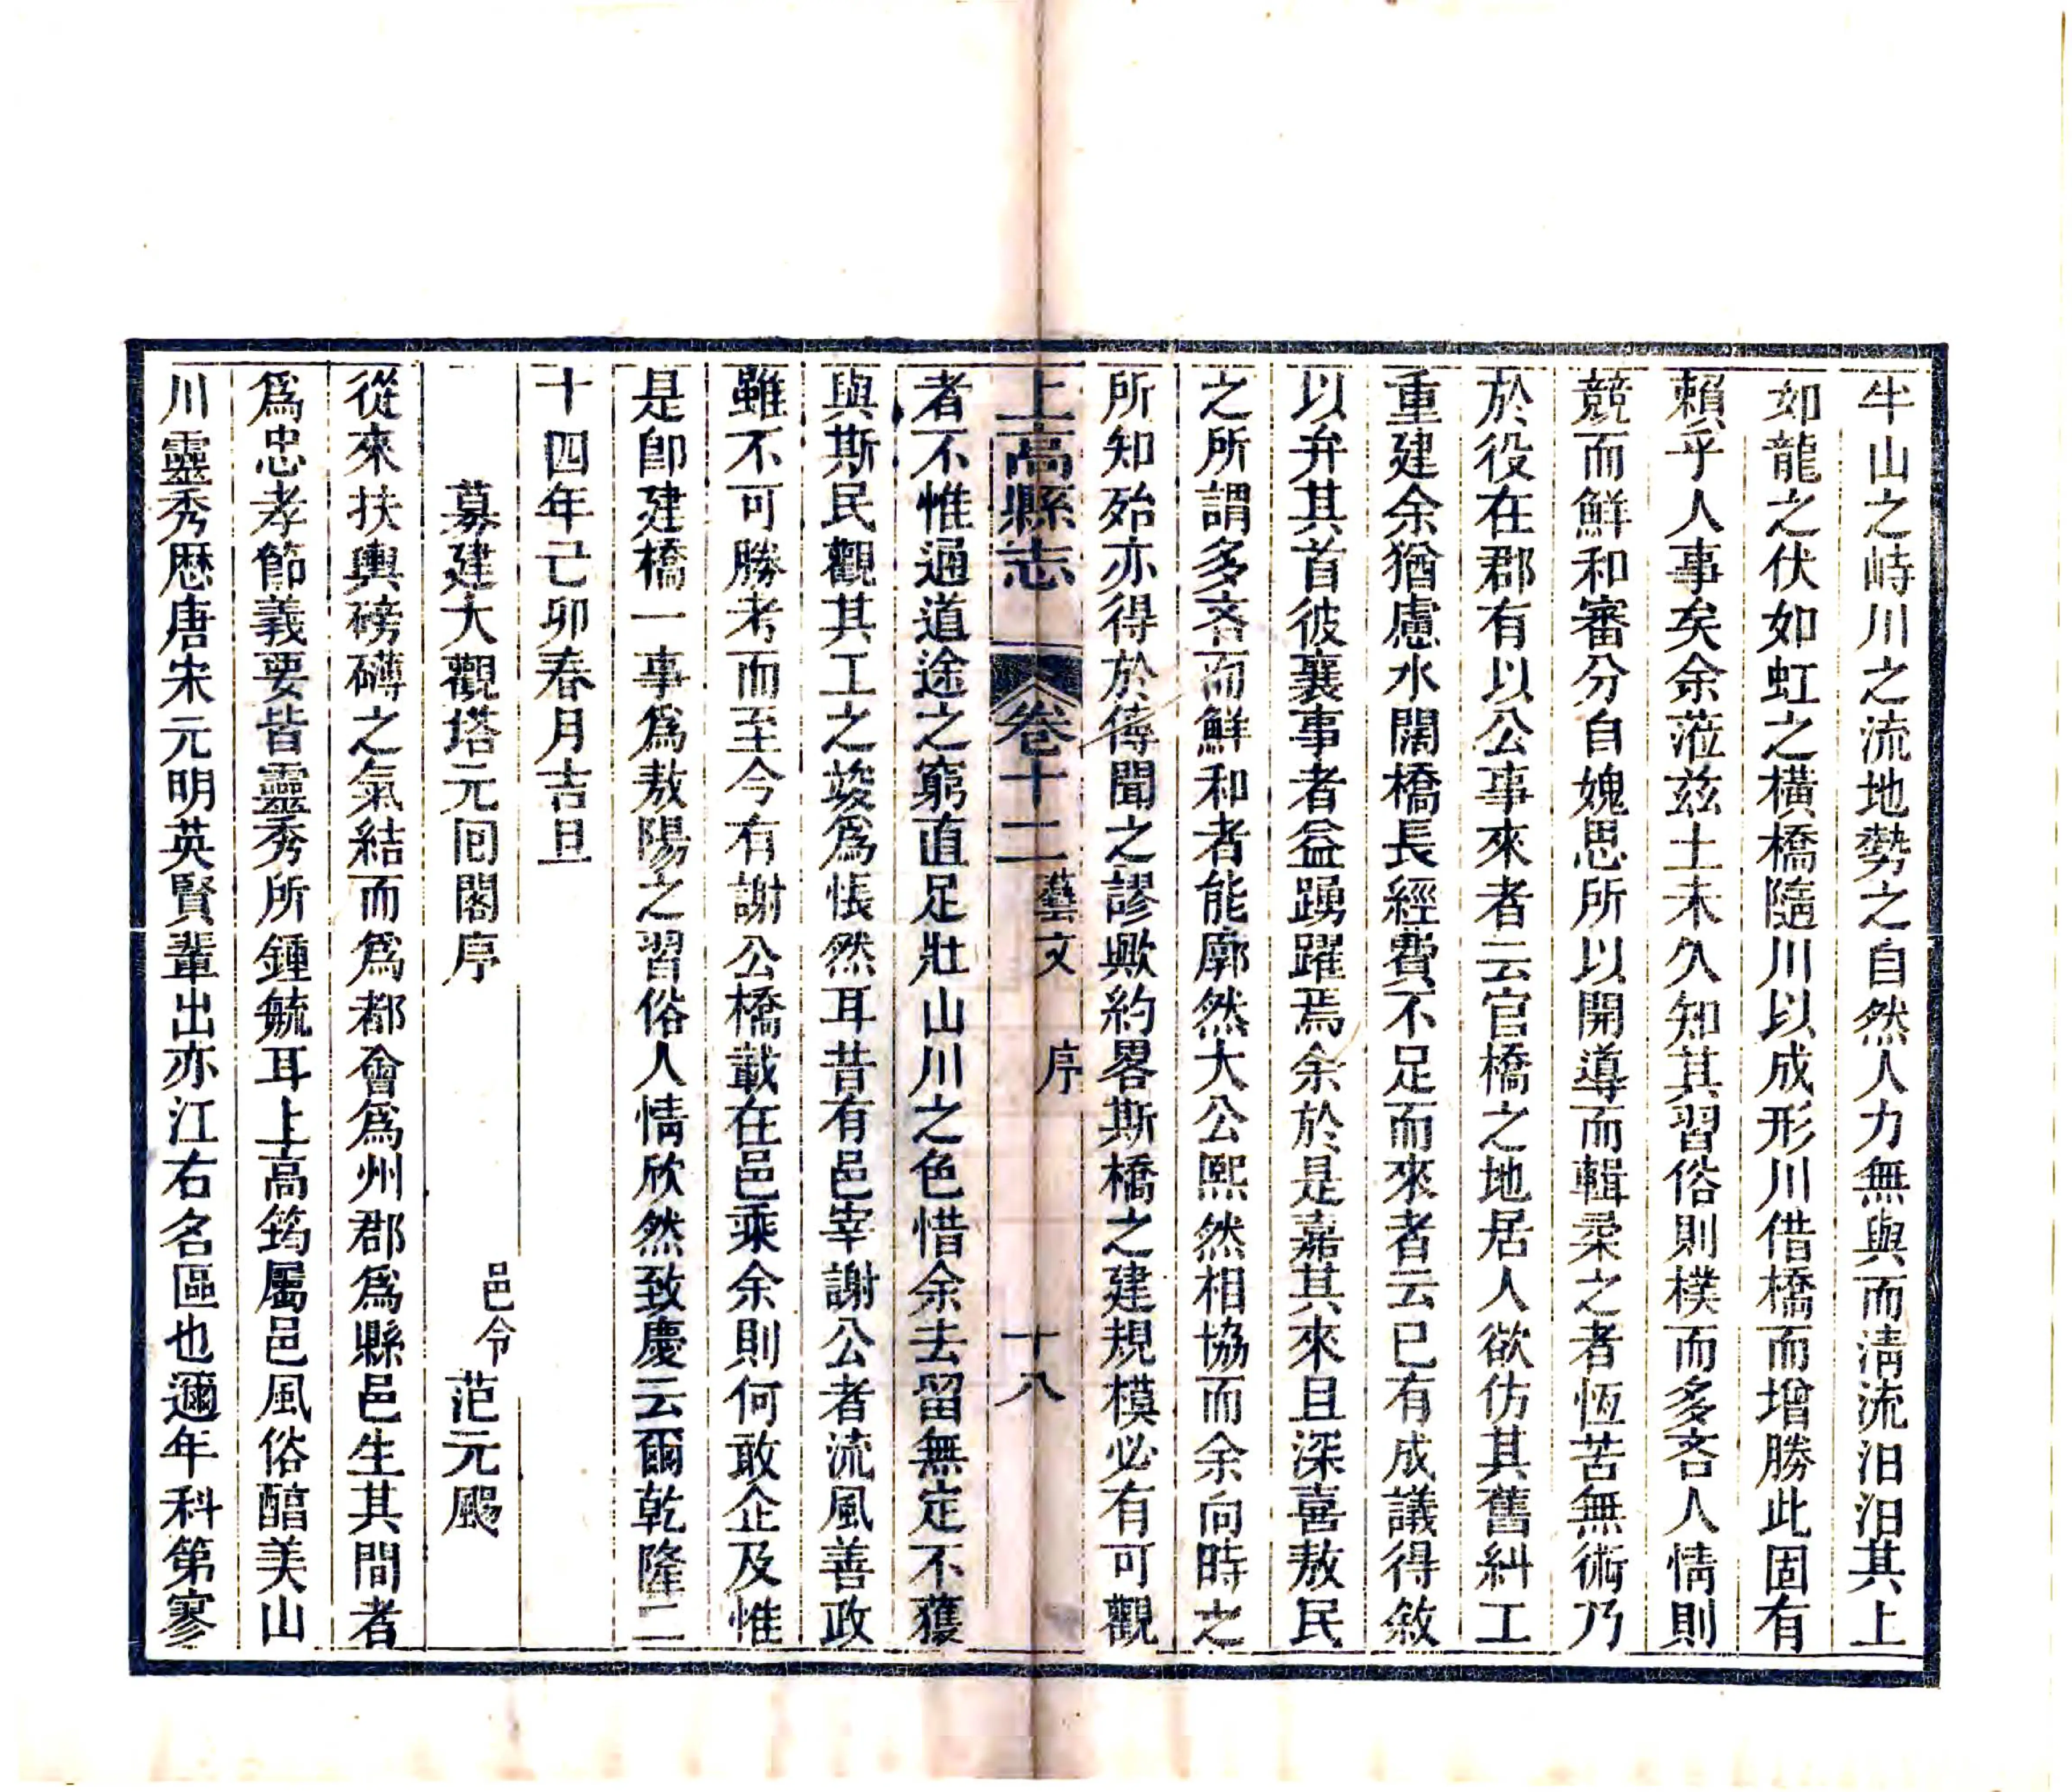 牛山之峙川之流地勢之自然人力無與而淸流汩汩其上
如龍之伏如虹之橫橋隨川以成形川借橋而增勝此固有
賴乎人事矣余蒞玆土未久知其習俗則樸而多吝人情則
競而鮮和審分自媿思所以開導而輯柔之者恆苦無術乃
於役在郡有以公事來者云官橋之地居人欲仿其舊糾工
重建余猶慮水闊橋長經費不足而來者云已有成議得敘
以弁其首彼襄事者益踴躍焉余於是嘉其來且深喜敖民
之所謂多吝而鮮和者能廓然大公熙然相協而余向時之
所知殆亦得於傳聞之謬歟約畧斯橋之建規模必有可觀
上高縣志 卷十二 藝文 序 十八
者不惟通道途之窮直足壯山川之色惜余去留無定不獲
與斯民觀其工之竣爲悵然耳昔有邑宰謝公者流風善政
雖不可勝考而至今有謝公橋載在邑乘余則何敢企及惟
是卽建橋一事爲敖陽之習俗人情欣然致慶云爾乾隆二
十四年己卯春月吉旦
募建大觀塔元囘閣序 邑令范元颺
從來扶輿磅礴之氣結而爲都會爲州郡爲縣邑生其間者
爲忠孝節義要皆靈秀所鍾毓耳上高筠屬邑風俗醕美山
川靈秀歷唐宋元明英賢輩出亦江右名區也邇年科第寥